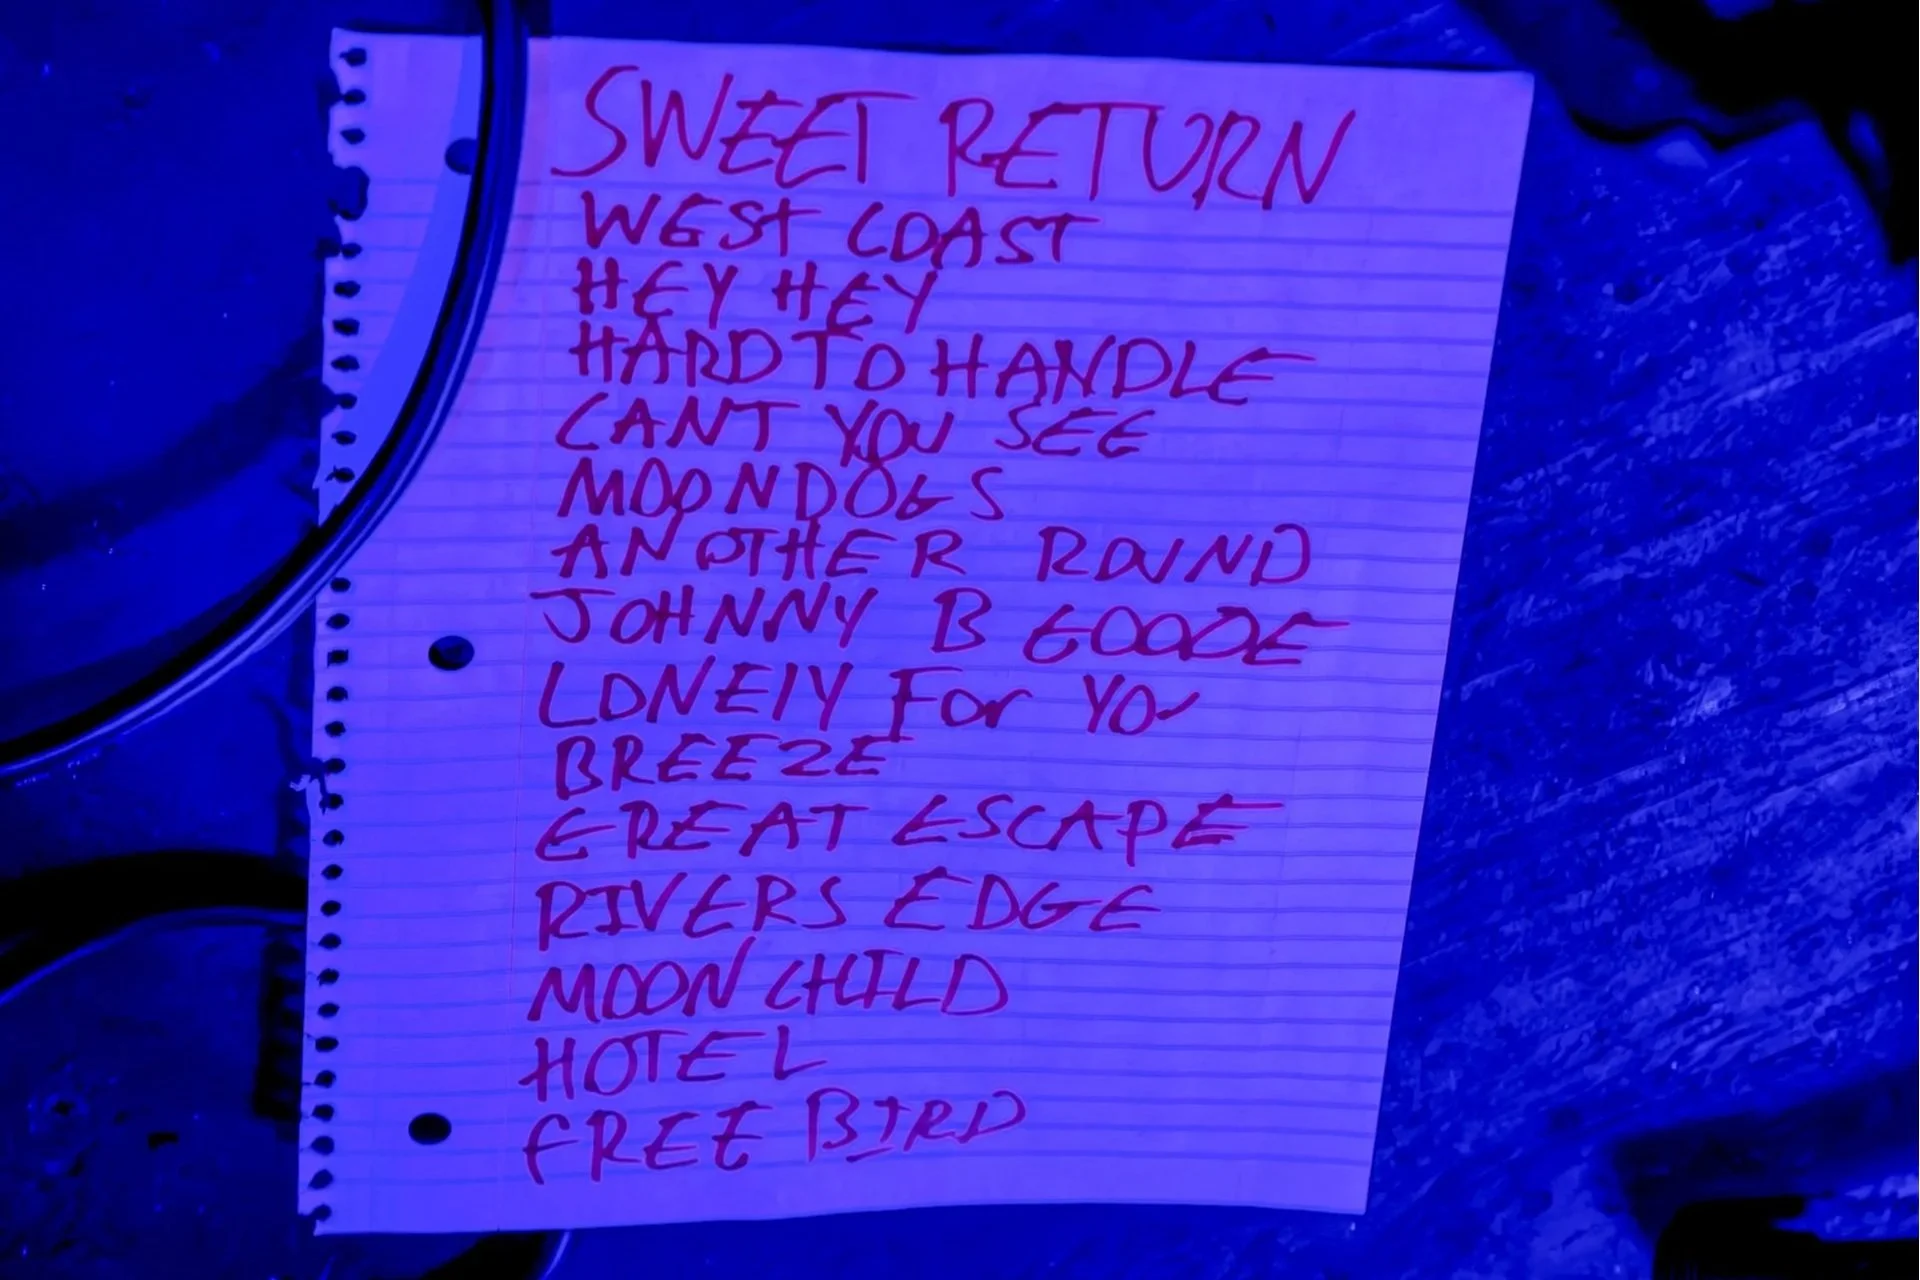 SWEET RETURN
WEST COAST
HEY HEY
HARD TO HANDLE
CANT YOU SEE
MOONDOGS
ANOTHER ROUND
JOHNNY B GOODE
LONELY For YOU
BREEZE
GREAT ESCAPE
RIVERS EDGE
MOONCHILD
HOTEL
FREE BIRD